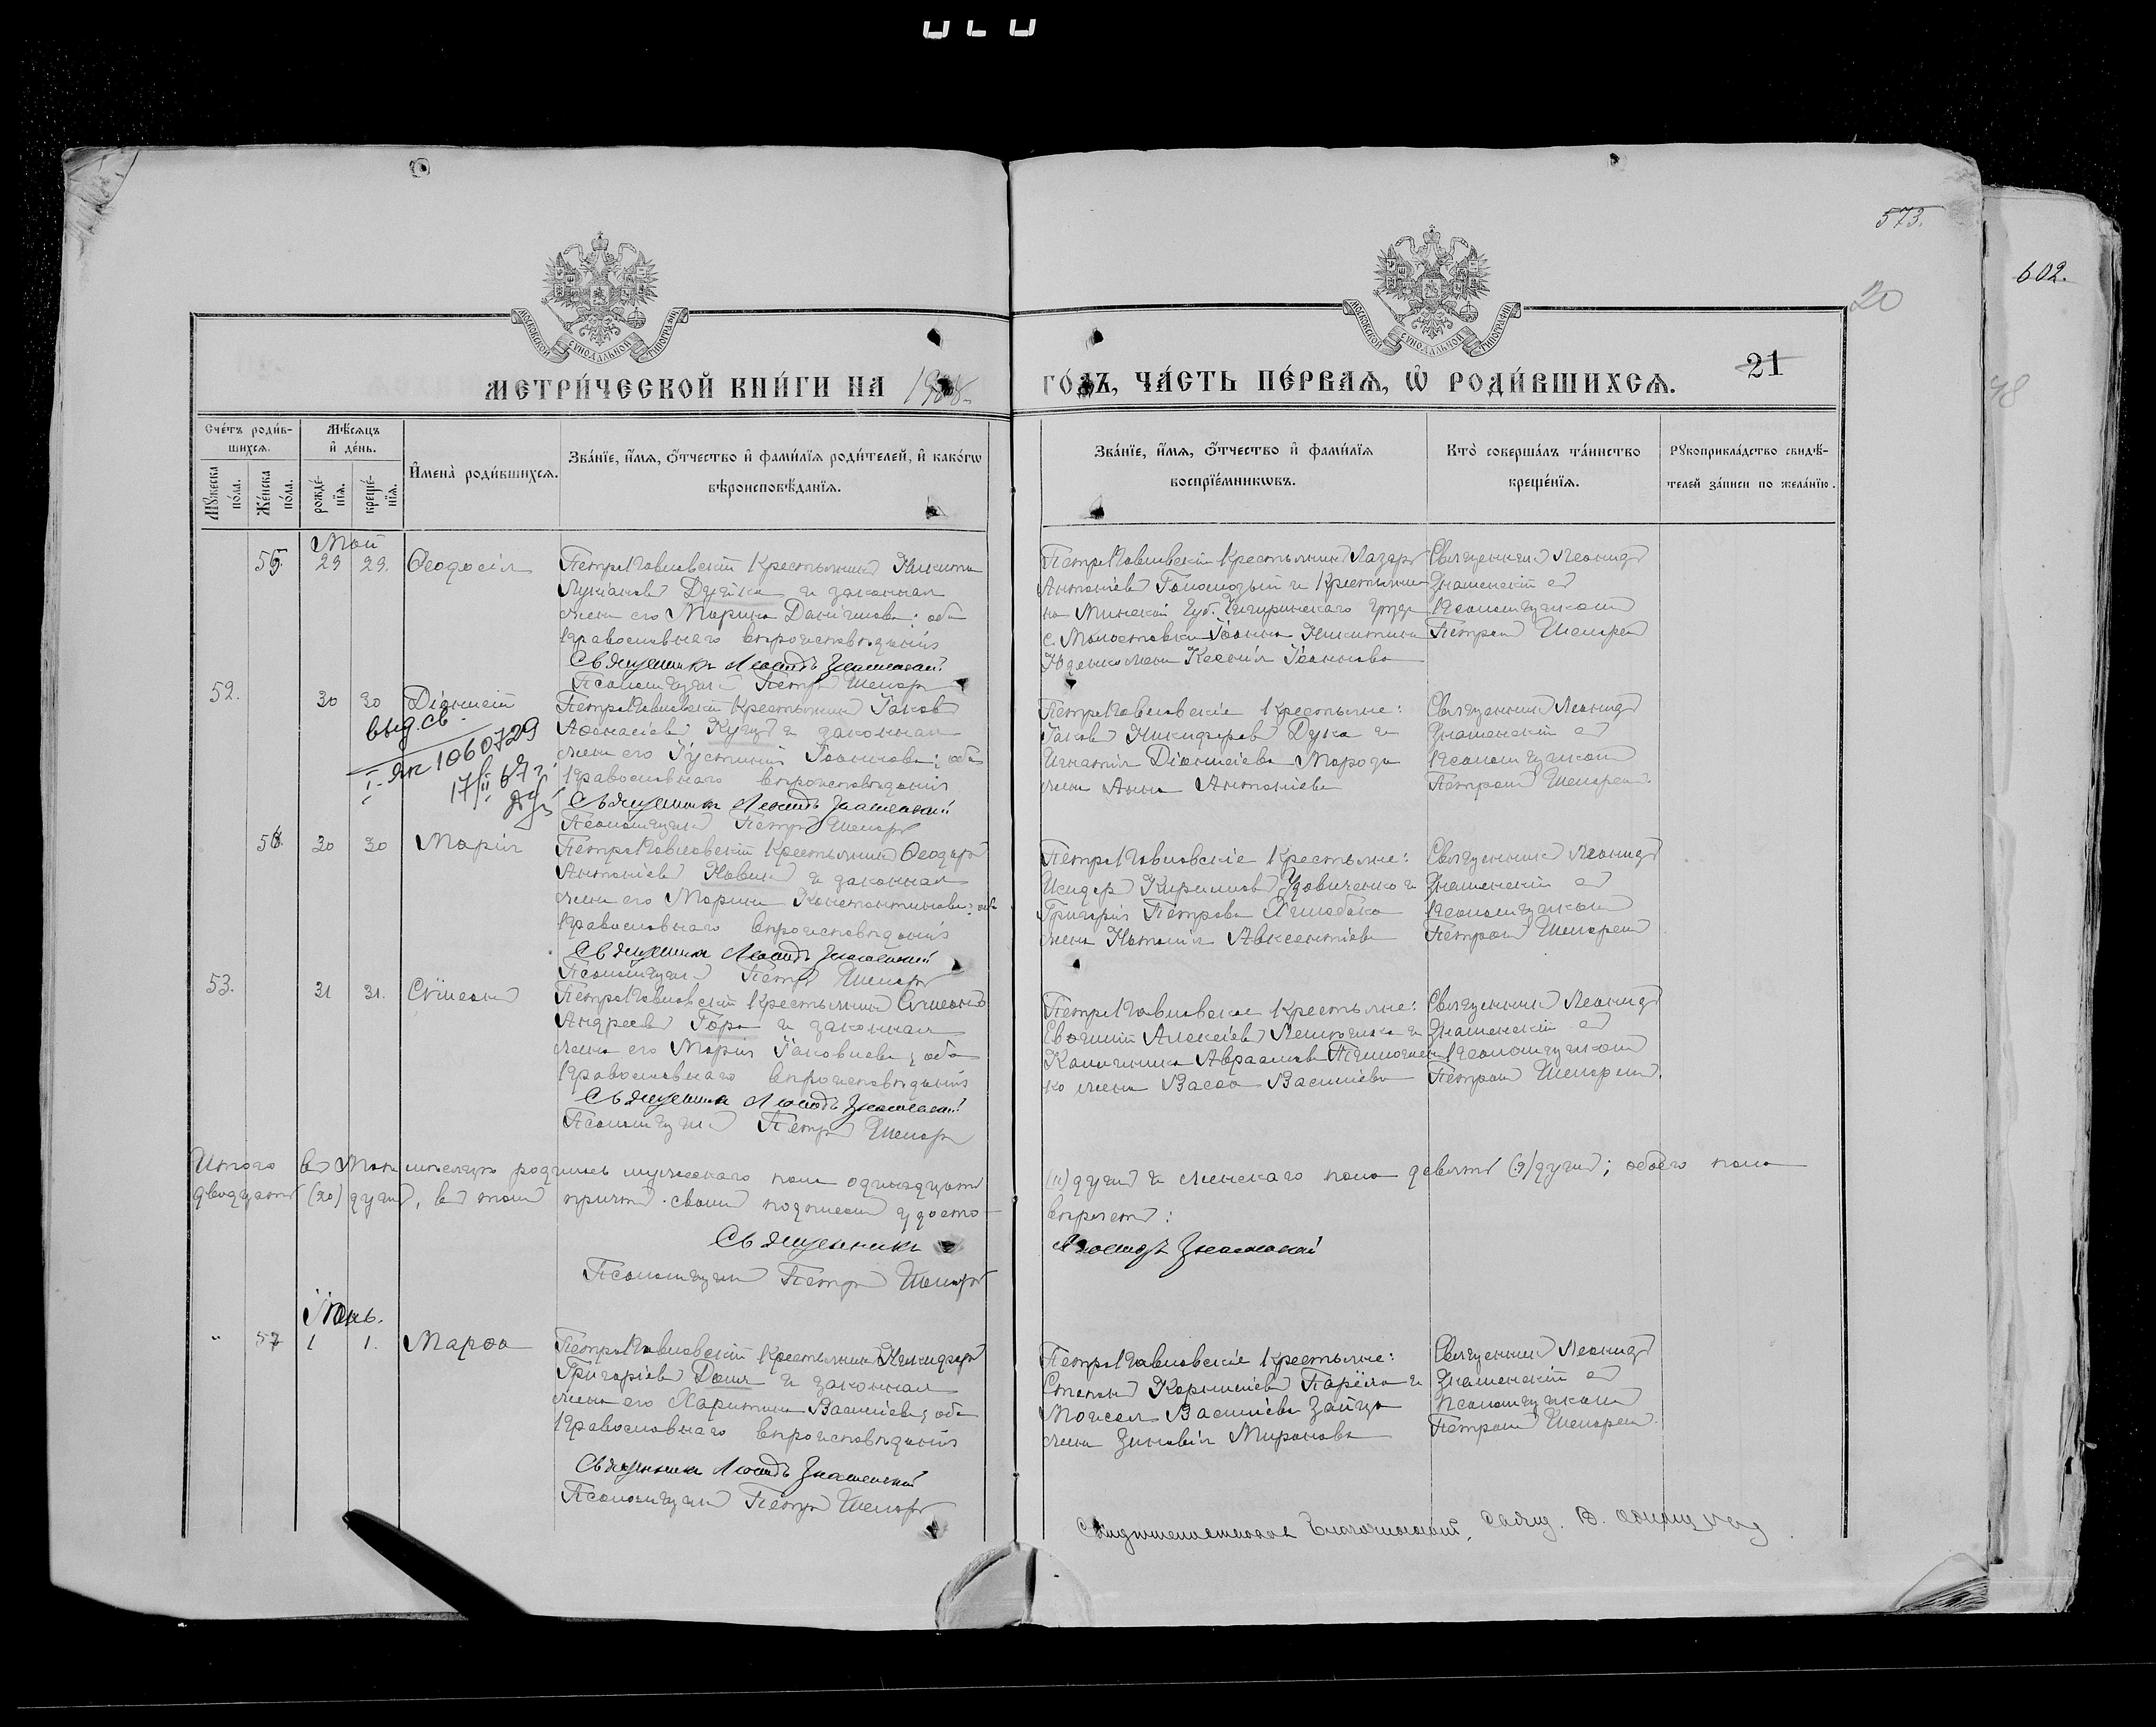 573.
602.
20
21
48
МОСКОВСКОЙ СУНОДАЛЬНОЙ ТИПОГРАФІИ
МОСКОВСКОЙ СУНОДАЛЬНОЙ ТИПОГРАФІИ
МЕТРИ́ЧЕСКОЙ КНИ́ГИ НА
ГО́ДЪ, ЧА́СТЬ ПЕ́РВАЯ, Ѽ РОДИ́ВШИХСЯ.
Сче́тъ роди́в-
шихся.
Мѣ́сяцъ
и҆ де́нь.
Мꙋ́жеска по́ла.
Же́нска по́ла.
рожде́-
нїя.
креще́-
нїя.
И҆мена̀ роди́вшихся.
Зва́нїе, и҆́мя, ѻ҆́тчество и҆ фами́лїя роди́телей, и҆ како́гѡ
вѣроисповѣ́данїя.
Зва́нїе, и҆́мя, ѻ҆́тчество и҆ фами́лїя
воспрїе́мникѡвъ.
Кто̀ соверша́лъ та́инство
креще́нїя.
Рꙋкоприкла́дство свидѣ́-
телей за́писи по жела́нїю.
Май
29 29. Ѳеодосія
ПетроПавловскій Крестьянинъ Никита
Лукіановъ и законная
жена его Марина Даніилова; оба
Православнаго вѣроисповѣданія
Священникъ Леонидъ Знаменскій
Псаломщикъ Петръ
ПетроПавловскій Крестьянинъ Лазарь
Антоніевъ и Крестьяни-
на губ. Чигиринскаго уѣзда
с. Іоанна Никитина
жена Ксенія Іоаннова
Священникъ Леонидъ
Знаменскій съ
Псаломщикомъ
Петромъ
52. 30 30 Діонисій
выд. св.
1060729
ПетроПавловскій Крестьянинъ Іаковъ
Аѳанасіевъ и законная
жена его Іустинія Іоаннова; оба
Православнаго вѣроисповѣданія
Священникъ Леонидъ Знаменскій
Псаломщикъ Петръ
ПетроПавловскіе Крестьяне:
Іаковъ Никифоровъ Дука и
Игнатія Діонисіева
жена Анна Антоніева
Священникъ Леонидъ
Знаменскій съ
Псаломщикомъ
Петромъ
30 30 Марія
ПетроПавловскій Крестьянинъ Ѳеодоръ
Антоніевъ Новикъ и законная
жена его Марина Константинова; оба
Православнаго вѣроисповѣданія
Священникъ Леонидъ Знаменскій
Псаломщикъ Петръ
ПетроПавловскіе Крестьяне:
Исидоръ Кирилловъ Удовиченко и
Григорія Петрова
жена Наталія Авксентіева
Священникъ Леонидъ
Знаменскій съ
Псаломщикомъ
Петромъ
53. 31 31. Сѵмеонъ
ПетроПавловскій Крестьянинъ Симеонъ
Андреевъ Гора и законная
жена его Марія Іаковлева; оба
Православнаго вѣроисповѣданія
Священникъ Леонидъ Знаменскій
Псаломщикъ Петръ
ПетроПавловскіе Крестьяне:
Евѳимій Алексіевъ и
Каллиника Авраамова
ко жена Васса Василіева
Священникъ Леонидъ
Знаменскій съ
Псаломщикомъ
Петромъ
Итого въ Маѣ мѣсяцѣ родилось мужескаго пола одинадцать
(11) душъ и женскаго пола девять (9) душъ; обоего пола
двадцать (20) душъ, въ томъ причтъ своимъ подписомъ удосто-
вѣряетъ:
Священникъ Леонидъ Знаменскій
Псаломщикъ Петръ
Іюнь.
" 57 1 1. Марѳа
ПетроПавловскій Крестьянинъ Никифоръ
Григоріевъ и законная
жена его Харитина Василіева; оба
Православнаго вѣроисповѣданія
Священникъ Леонидъ Знаменскій
Псаломщикъ Петръ
ПетроПавловскіе Крестьяне:
Стефанъ Корниліевъ и
Моисея Василіева Зайца
жена Зиновія Миронова
Священникъ Леонидъ
Знаменскій съ
Псаломщикомъ
Петромъ
Благочинный, Свящ. В.